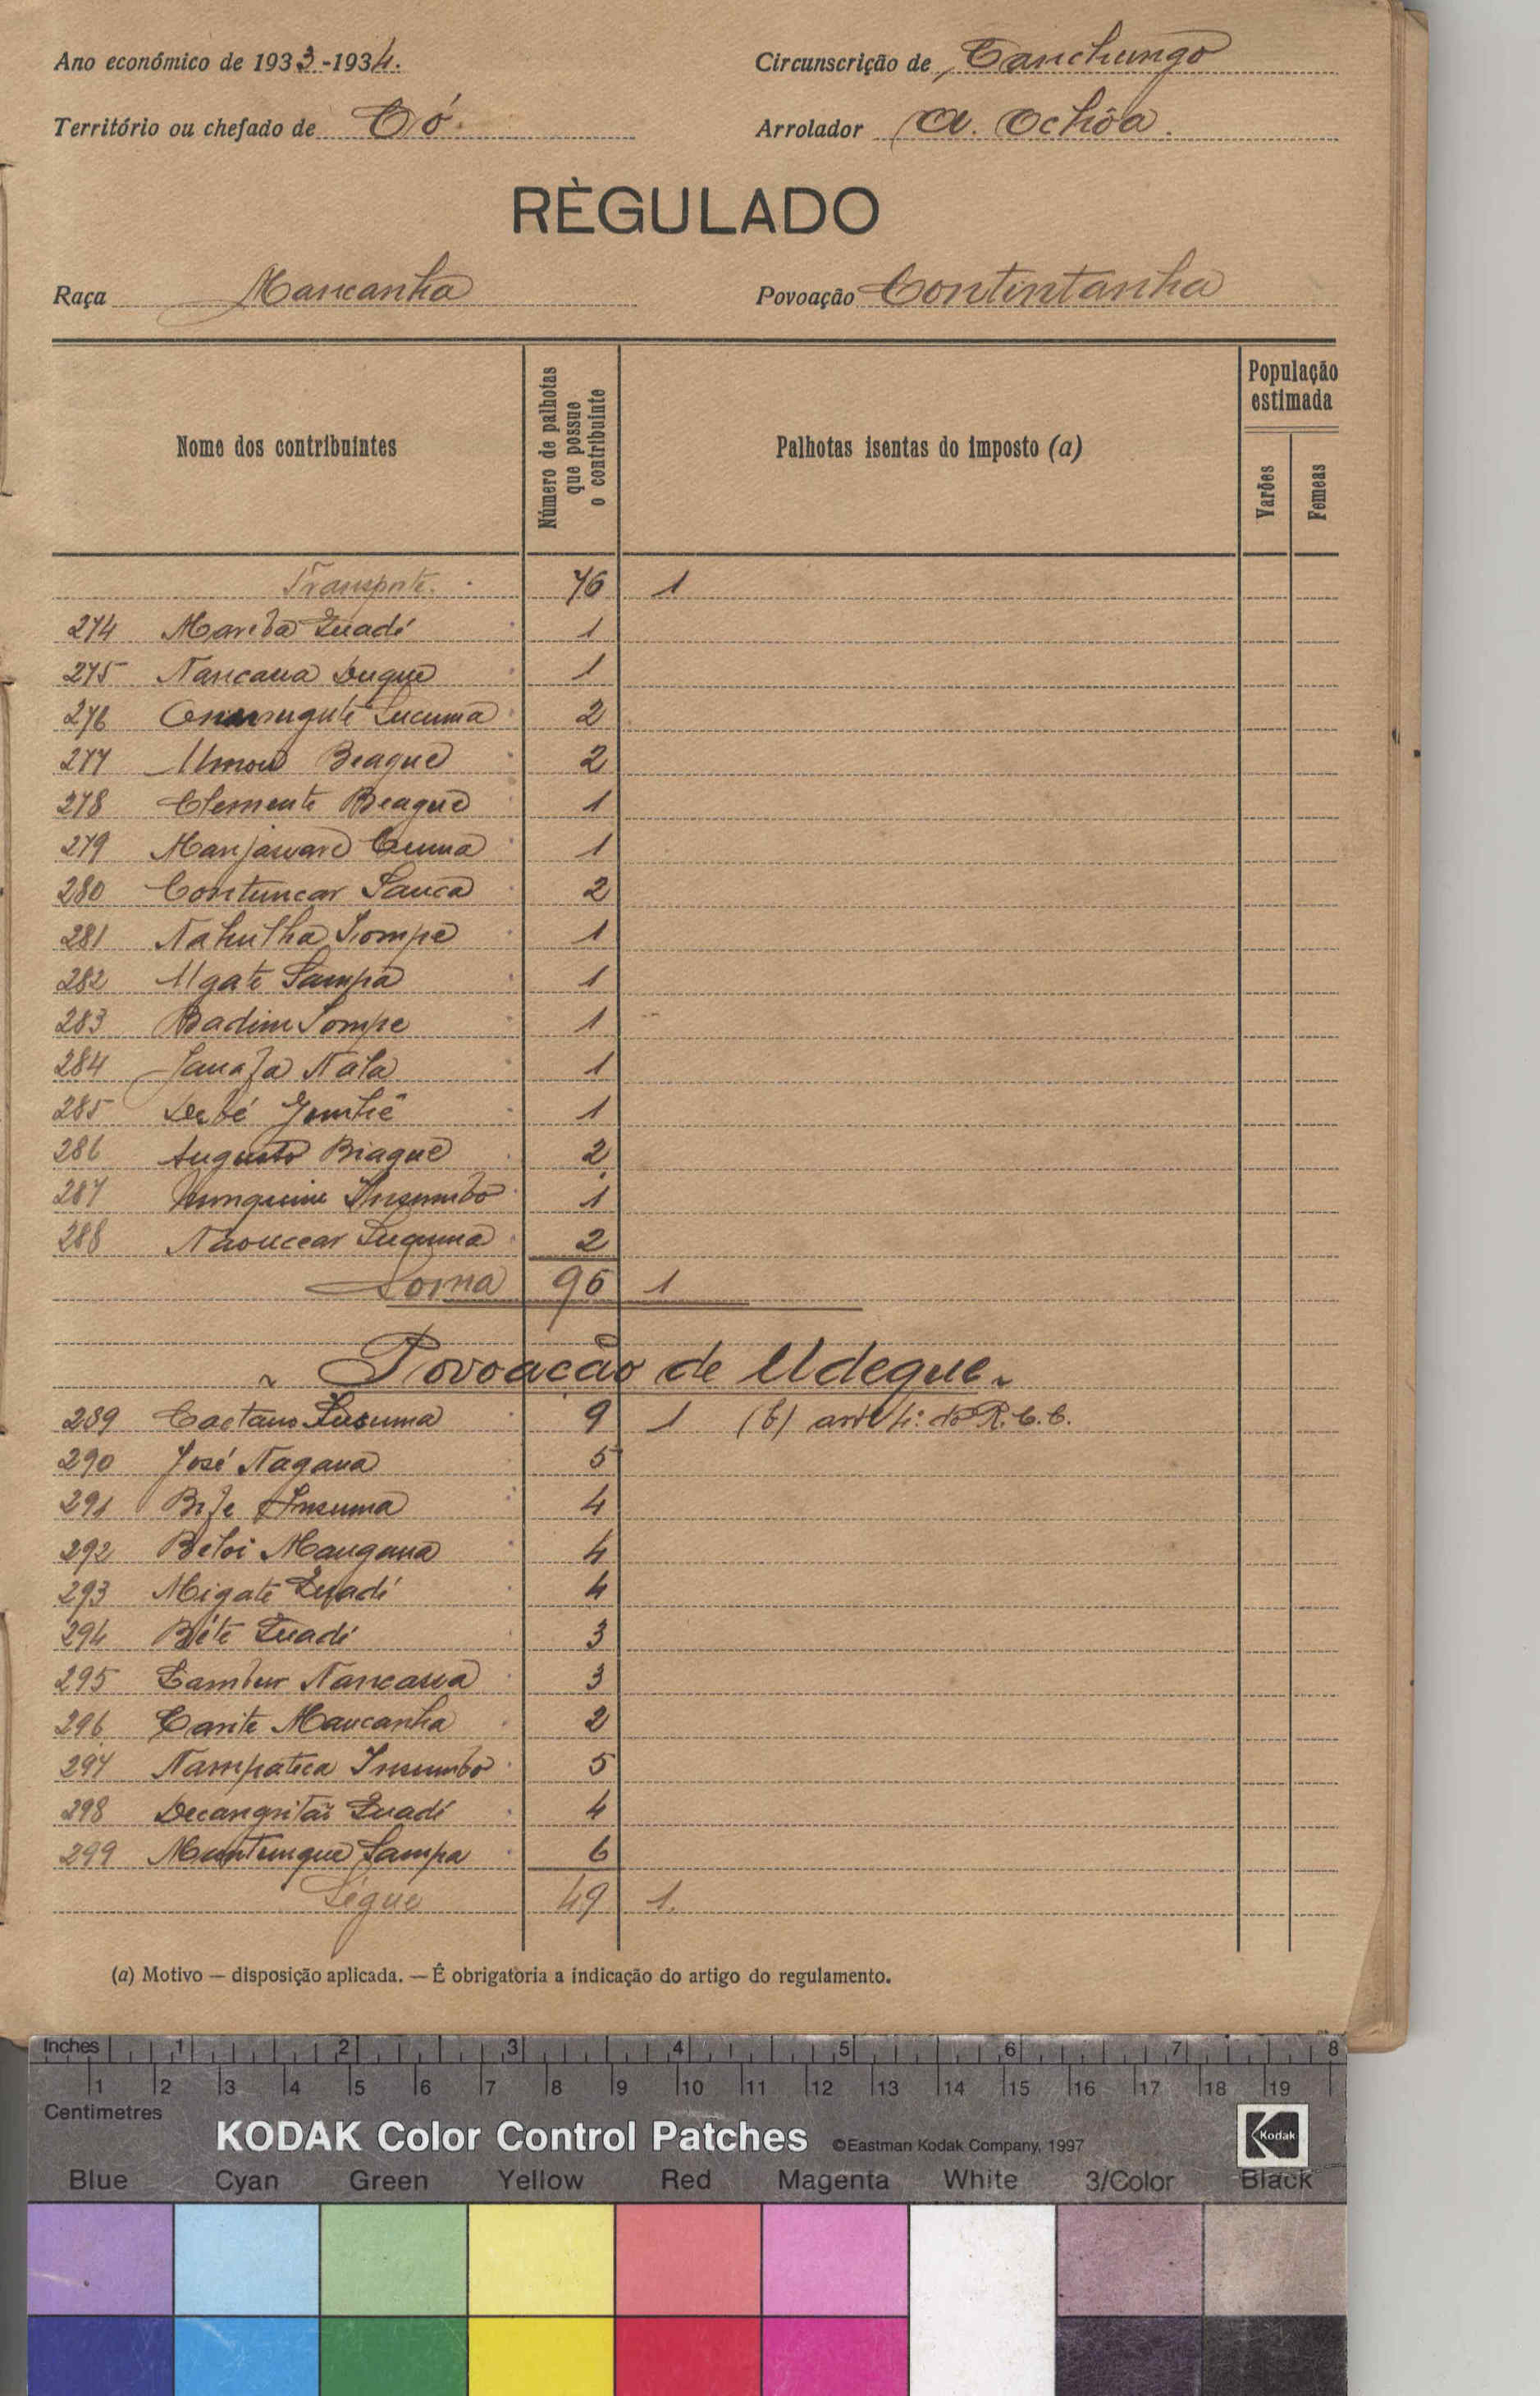 Ano económico de 1933-1934.
Circunscrição de Canchungo
Território ou chefado de Có.
Arrolador A. Ochôa.
RÈGULADO
Raça Mancanha
Povoação Contintanha
Nome dos contribuintes
Número de palhotas que possue o contribuinte
Palhotas isentas do imposto (a)
População estimada
Varões
Femeas
Transporte. 76 1
274 Mariba Quadé 1
275 Nancaua Duque 1
276 Lucuma 2
277 Umou Beague 2
278 Clemente Beague 1
279 Cuma 1
280 Contuncar Sanca 2
281 Nahulha Sompe 1
282 Ugate Sampa 1
283 Badim Sompe 1
284 Nala 1
285 1
286 Augusto Biague 2
287 Insumbo 1
288 2
Soma 96 1
Povoacão de Udeque
289 Caetano Lucuma 9 1 (b) artº 4º do R. C. C.
290 José Nagana 5
291 Bife Insuma 4
292 Beloi Mangana 4
293 Migate Quadé 4
294 Béte Quadé 3
295 Lambur Nancassa 3
296 Carite Mancanha 2
297 Nampatica Insumbo 5
298 Quadé 4
299 Muntungue Sampa 6
Ségue 49 1.
(a) Motivo — disposição aplicada. — É obrigatoria a indicação do artigo do regulamento.
Inches 1 2 3 4 5 6 7 8
1 2 3 4 5 6 7 8 9 10 11 12 13 14 15 16 17 18 19
Centimetres
KODAK Color Control Patches ©Eastman Kodak Company, 1997 Kodak
Blue Cyan Green Yellow Red Magenta White 3/Color Black